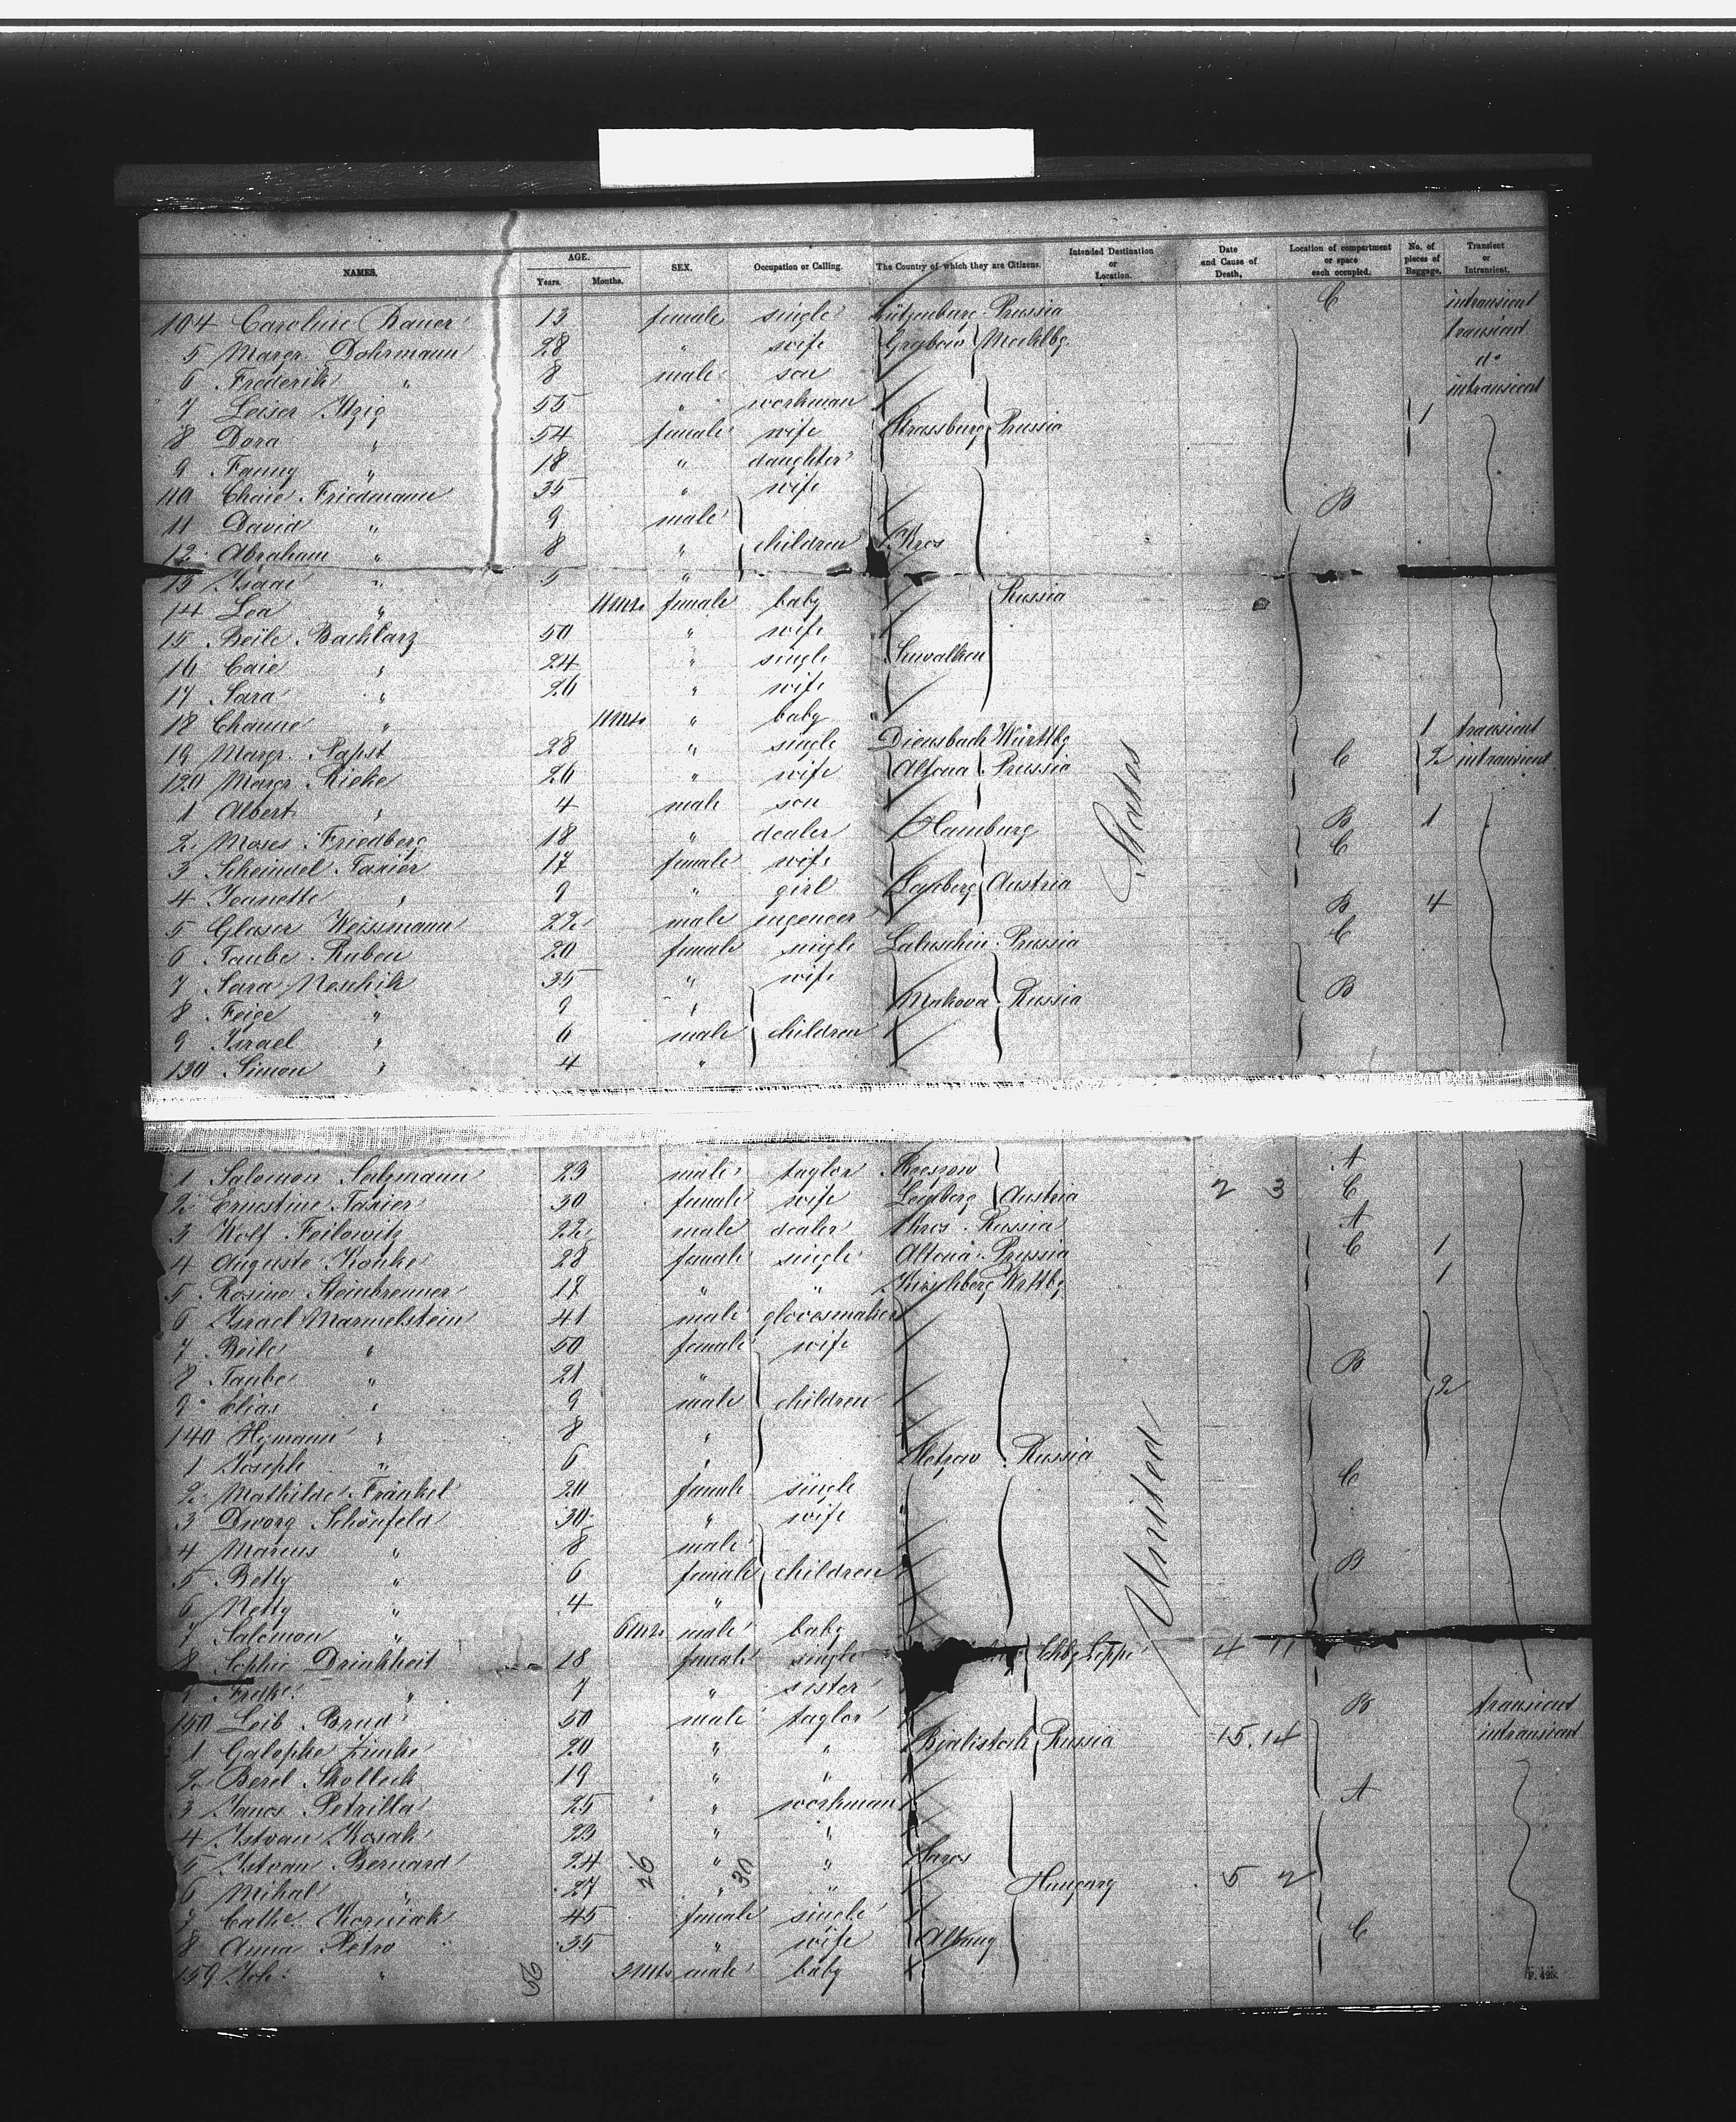 NAMES. AGE. Years. Months. SEX. Occupation or Calling. The Country of which they are Citizens. Intended Destination or Location. Date and Cause of Death, Location of compartment or space each occupied. No. of pieces of Baggage, Transient or Intransient.
104 Caroline Bauer 13 female single Prussia C intransient
5 Margr. Dohrmann 28 " wife Grabow Mecklbg. transient
6 Frederik " 8 male son do
7 Leiser Itzig 55 " workman intransient
8 Dora " 54 female wife Strassburg Prussia 1
9 Fanny " 18 " daughter
110 Chaie Friedmann 35 " wife B
11 David " 9 male
12 Abraham " 8 " children
13 Isaac " 5 "
14 Lea " 11 Mts. female baby Russia
15 Beile Bachlarz 50 " wife
16 Caie " 24 " single Suwalken
17 Sara " 26 " wife
18 Channe " 11 Mts " baby
19 Margr. Papst 28 " single Diensbach Württbg 1 transient
120 Margr. Rieke 26 " wife Altona Prussia C 2 intransient
1 Albert " 4 male son
2 Moses Friedberg 18 " dealer Hamburg B 1
3 Scheindel Taxier 17 female wife C
4 Jeanette " 9 " girl Lemberg Austria
5 Glaser Weissmann 22 male ingeneer B 4
6 Taube Ruben 20 female single Labischin Prussia C
7 Sara Noschik 35 " wife
8 Feige " 9 " Makova Russia B
9 Israel " 6 male children
130 Simon " 4 "
1 Salomon Salzmann 23 male taylor A
2 Ernestine Taxier 30 female wife Lemberg Austria 2 3 C
3 Wolf Feilowitz 22 male dealer Russia A
4 Auguste Konke 28 female single Altona Prussia C 1
5 Rosine Steinbrenner 17 " " Kirchberg Wrttbg 1
6 Israel Marmelstein 41 male glovesmaker
7 Beile " 50 female wife
8 Taube " 21 " B
9 Elias " 9 male children 2
140 Hymann " 8 "
1 Joseph " 6 " Russia
2 Mathilde Fränkel 20 female single C
3 Dworg Schönfeld 30 " wife
4 Marcus " 8 male
5 Betty " 6 female children B
6 Netty " 4 "
7 Salomon " 6 Mts. male baby
8 Sophie Drinkheit 18 female single Schbg Lippe 4 11
9 " 7 " sister
150 Leib Brud 50 male taylor B transient
1 Galopke Zinke 20 " " Bialistock Russia 15 14 intransient
2 Berel Skolleck 19 " "
3 Janos Petrilla 25 " workman A
4 Istvan Kosak 23 " "
5 Istvan Bernard 24 " " Saros
6 Mihal " 27 " " Hungary 5 2
7 Cathe Korniak 45 female single
8 Anna Petro 35 " wife C
159 Joh. " 3 Mts male baby
United States
26
30
56